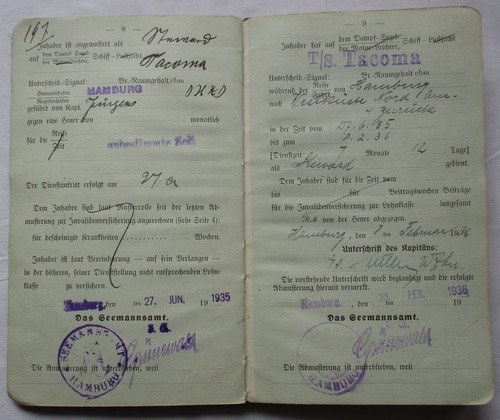 197.
— 8 —
Inhaber ist angemustert als Steward
auf dem Dampf-Segel-Schiff-Luftschiff Tacoma
dem Motor-Leichter,
Unterscheid.-Signal: Br.-Raumgehalt cbm
Heimatshafen HAMBURG
Registerhafen
geführt von Kapt. Jürgens
gegen eine Heuer von monatlich
Reise
für die
Zeit unbestimmte Zeit
Der Dienstantritt erfolgt am 27. 6.
Dem Inhaber sind laut Musterrolle seit der letzten Ab-
musterung zur Invalidenversicherung anzurechnen (siehe Seite 4):
für bescheinigte Krankheiten Wochen.
Inhaber ist laut Vereinbarung — auf sein Verlangen —
in der höheren, seiner Dienststellung nicht entsprechenden Lohn-
klasse zu versichern.
Hamburg, den 27. JUN. 1935
Das Seemannsamt.
J. A.
Grünewald
SEEMANNSAMT HAMBURG
Die Abmusterung ist unterblieben, weil
— 9 —
Inhaber hat auf dem Dampf-Segel-Schiff-Luftschiff
der Motor-Leichter,
T/S. Tacoma
Unterscheid.-Signal: Br.-Raumgehalt cbm
während der Reise von Hamburg
nach Westküste Nord Am.
zurück
in der Zeit vom 27.6.35
bis zum 8.2.36
[Dienstzeit: 7 Monate 12 Tage]
als Steward gedient.
Dem Inhaber sind für die Zeit vom
bis für Beitragswochen Beiträge
für die Invalidenversicherung zur Lohnklasse insgesamt
RM von der Heuer abgezogen.
Hamburg, den Februar 1936
Unterschrift des Kapitäns:
Die vorstehende Unterschrift wird beglaubigt und die erfolgte
Abmusterung hiermit vermerkt.
Hamburg, den 10. FEB. 1936
Das Seemannsamt.
Grünewald
HAMBURG
Die Anmusterung ist unterblieben, weil